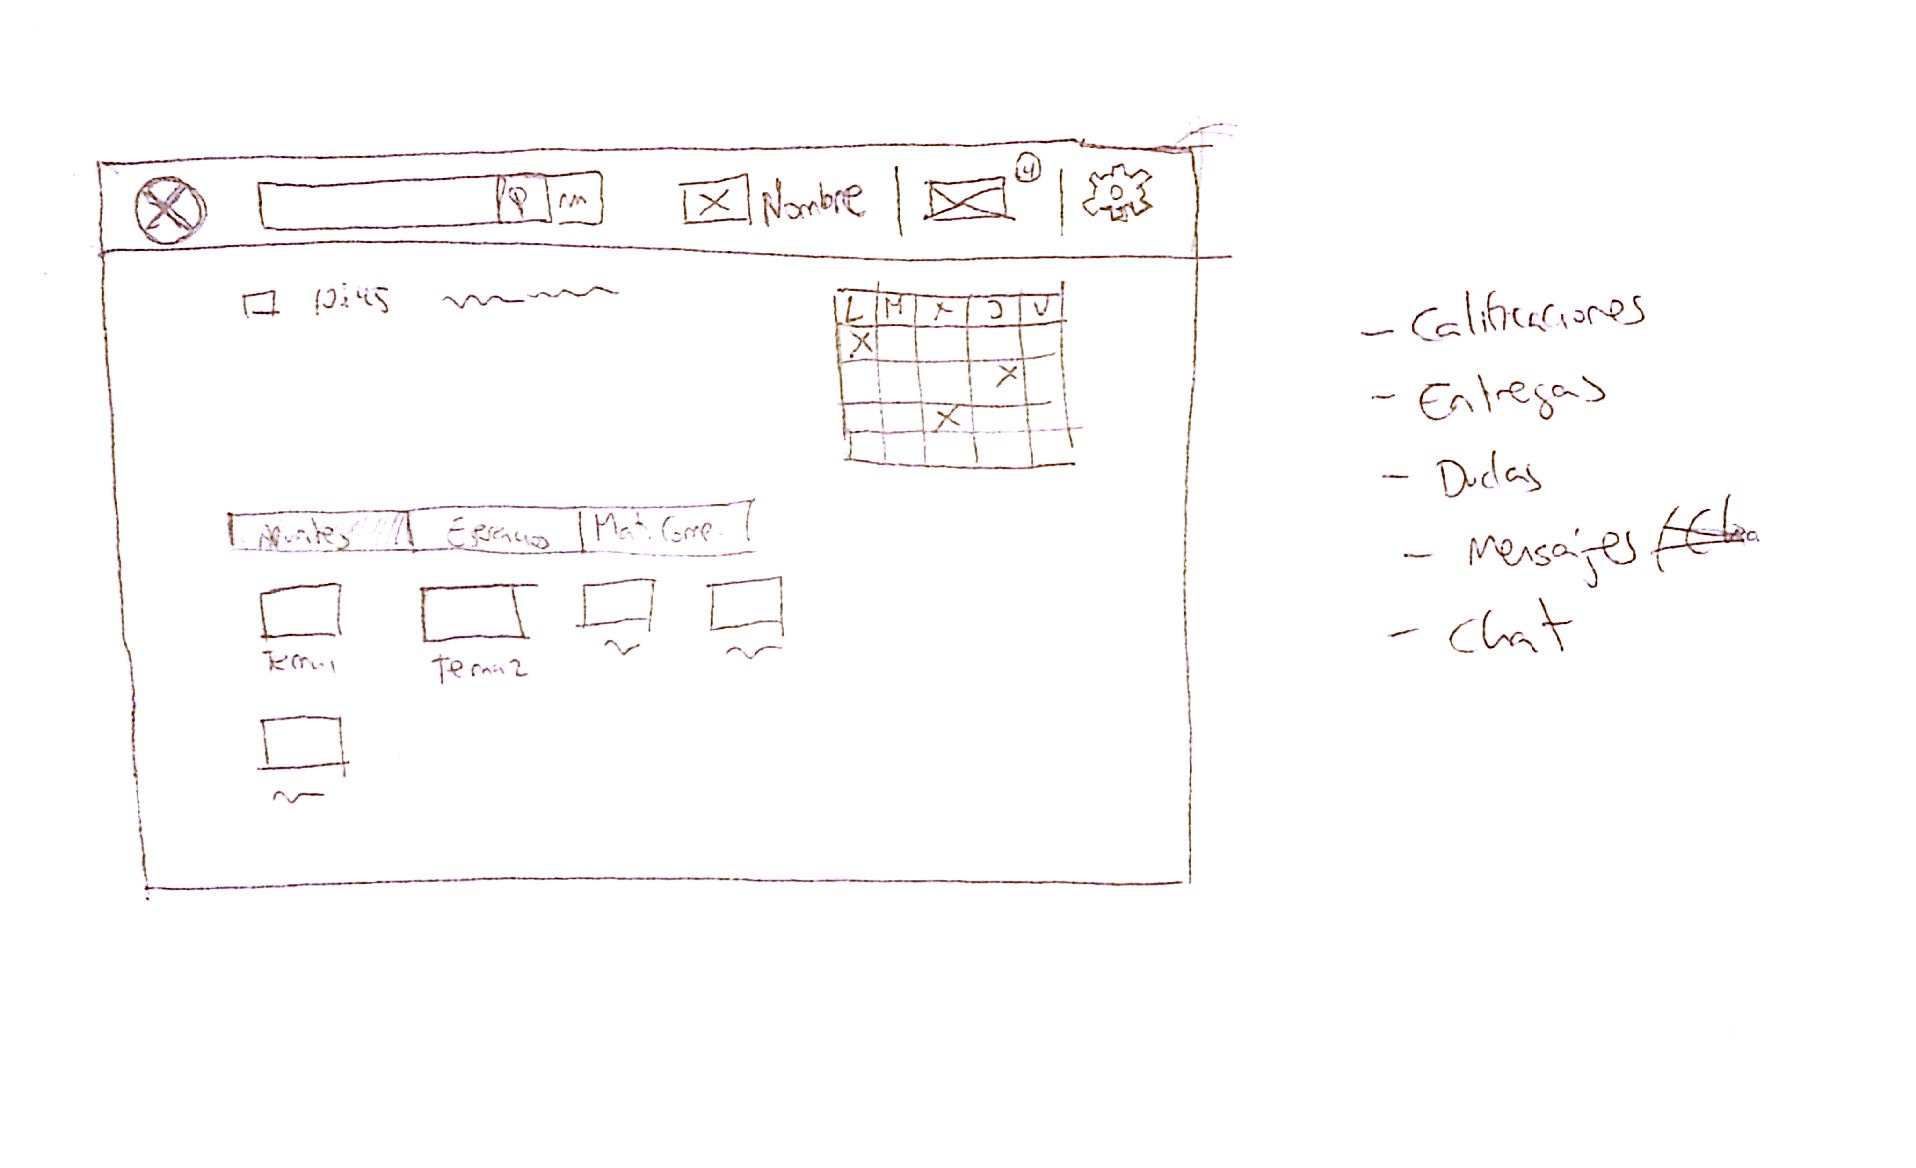 Nombre
4
10:45
L M X J V
X
X
X
Apuntes Ejercicios Mat. Comp.
Tema 1 Tema 2
- Calificaciones
- Entregas
- Dudas
- Mensajes
- Chat